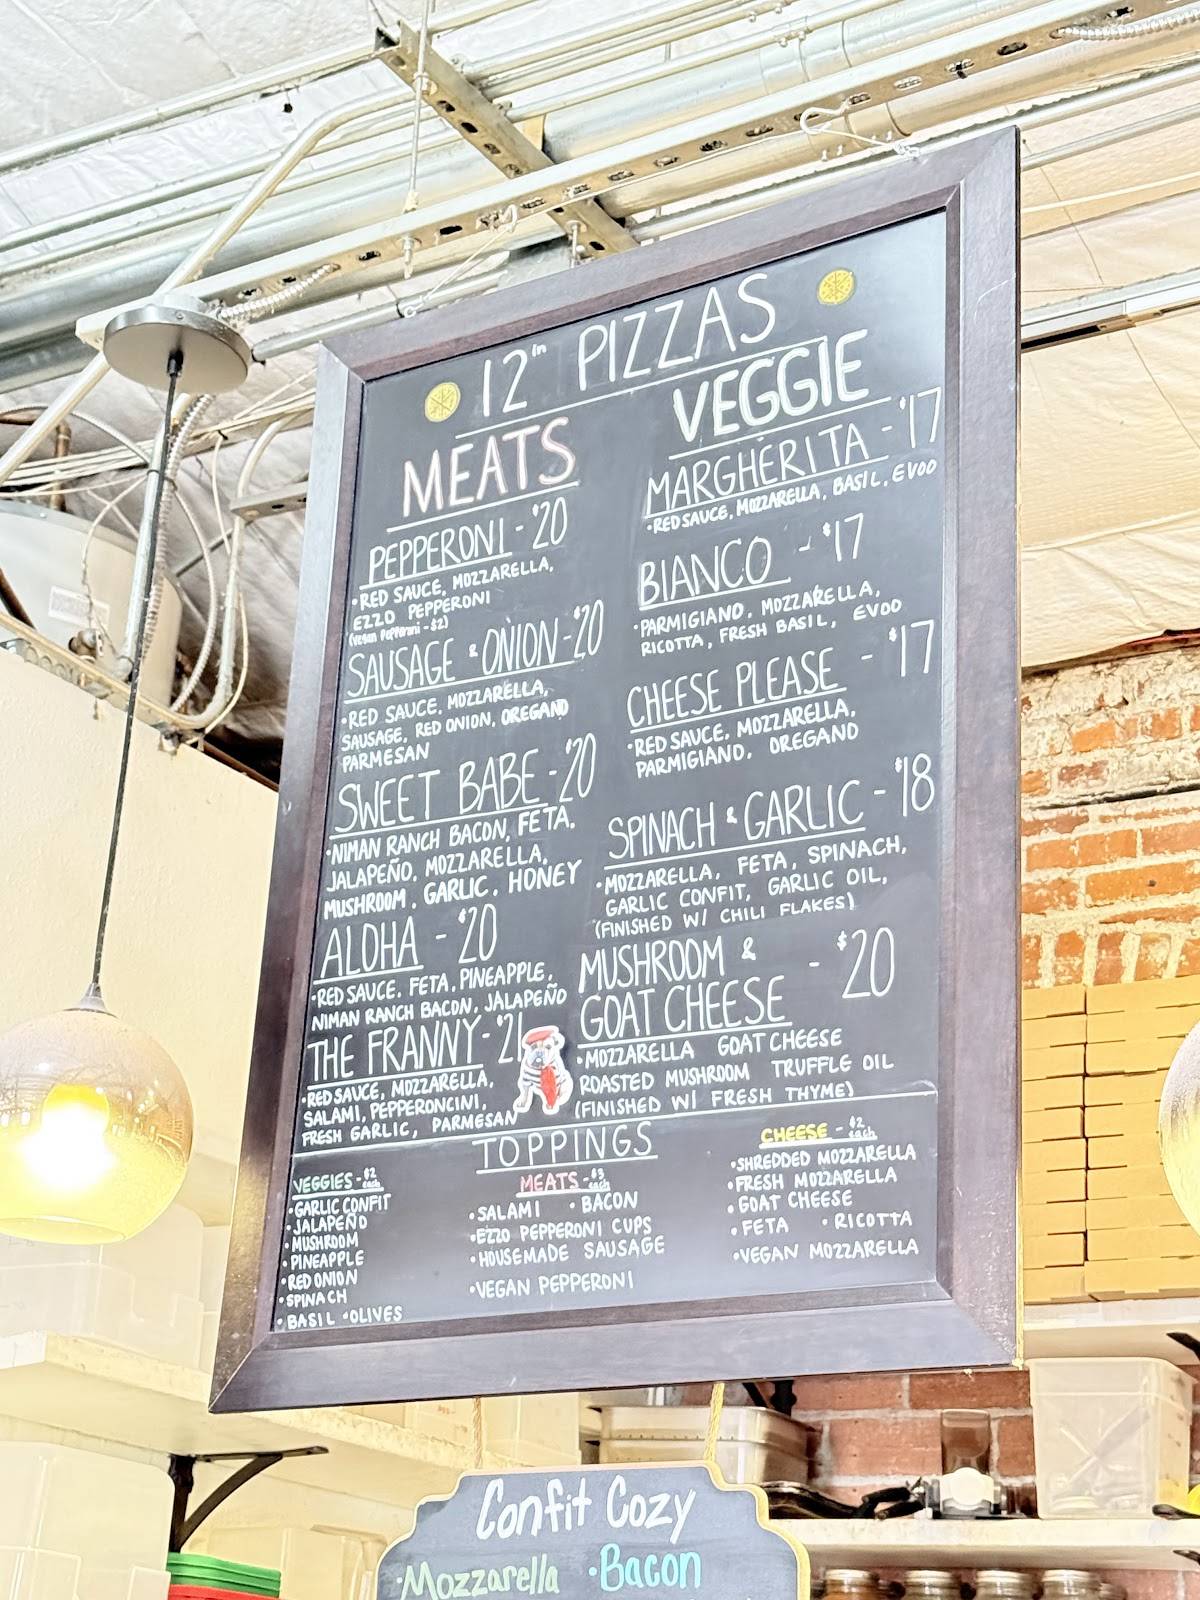 12in PIZZAS
MEATS
PEPPERONI - $20
•RED SAUCE, MOZZARELLA,
EZZO PEPPERONI
(Vegan Pepperoni - $2)
SAUSAGE & ONION - $20
•RED SAUCE, MOZZARELLA,
SAUSAGE, RED ONION, OREGANO
PARMESAN
SWEET BABE - $20
•NIMAN RANCH BACON, FETA,
JALAPEÑO, MOZZARELLA,
MUSHROOM, GARLIC, HONEY
ALOHA - $20
•RED SAUCE, FETA, PINEAPPLE,
NIMAN RANCH BACON, JALAPEÑO
THE FRANNY - $21
•RED SAUCE, MOZZARELLA,
SALAMI, PEPPERONCINI,
FRESH GARLIC, PARMESAN
VEGGIE
MARGHERITA - $17
•RED SAUCE, MOZZARELLA, BASIL, EVOO
BIANCO - $17
•PARMIGIANO, MOZZARELLA,
RICOTTA, FRESH BASIL, EVOO
CHEESE PLEASE - $17
•RED SAUCE, MOZZARELLA,
PARMIGIANO, OREGANO
SPINACH & GARLIC - $18
•MOZZARELLA, FETA, SPINACH,
GARLIC CONFIT, GARLIC OIL,
(FINISHED W/ CHILI FLAKES)
MUSHROOM &
GOAT CHEESE - $20
•MOZZARELLA GOAT CHEESE
ROASTED MUSHROOM TRUFFLE OIL
(FINISHED W/ FRESH THYME)
TOPPINGS
VEGGIES - $2 each
•GARLIC CONFIT
•JALAPEÑO
•MUSHROOM
•PINEAPPLE
•RED ONION
•SPINACH
•BASIL •OLIVES
MEATS - $3 each
•SALAMI •BACON
•EZZO PEPPERONI CUPS
•HOUSEMADE SAUSAGE
•VEGAN PEPPERONI
CHEESE - $2 each
•SHREDDED MOZZARELLA
•FRESH MOZZARELLA
•GOAT CHEESE
•FETA •RICOTTA
•VEGAN MOZZARELLA
Confit Cozy
•Mozzarella •Bacon